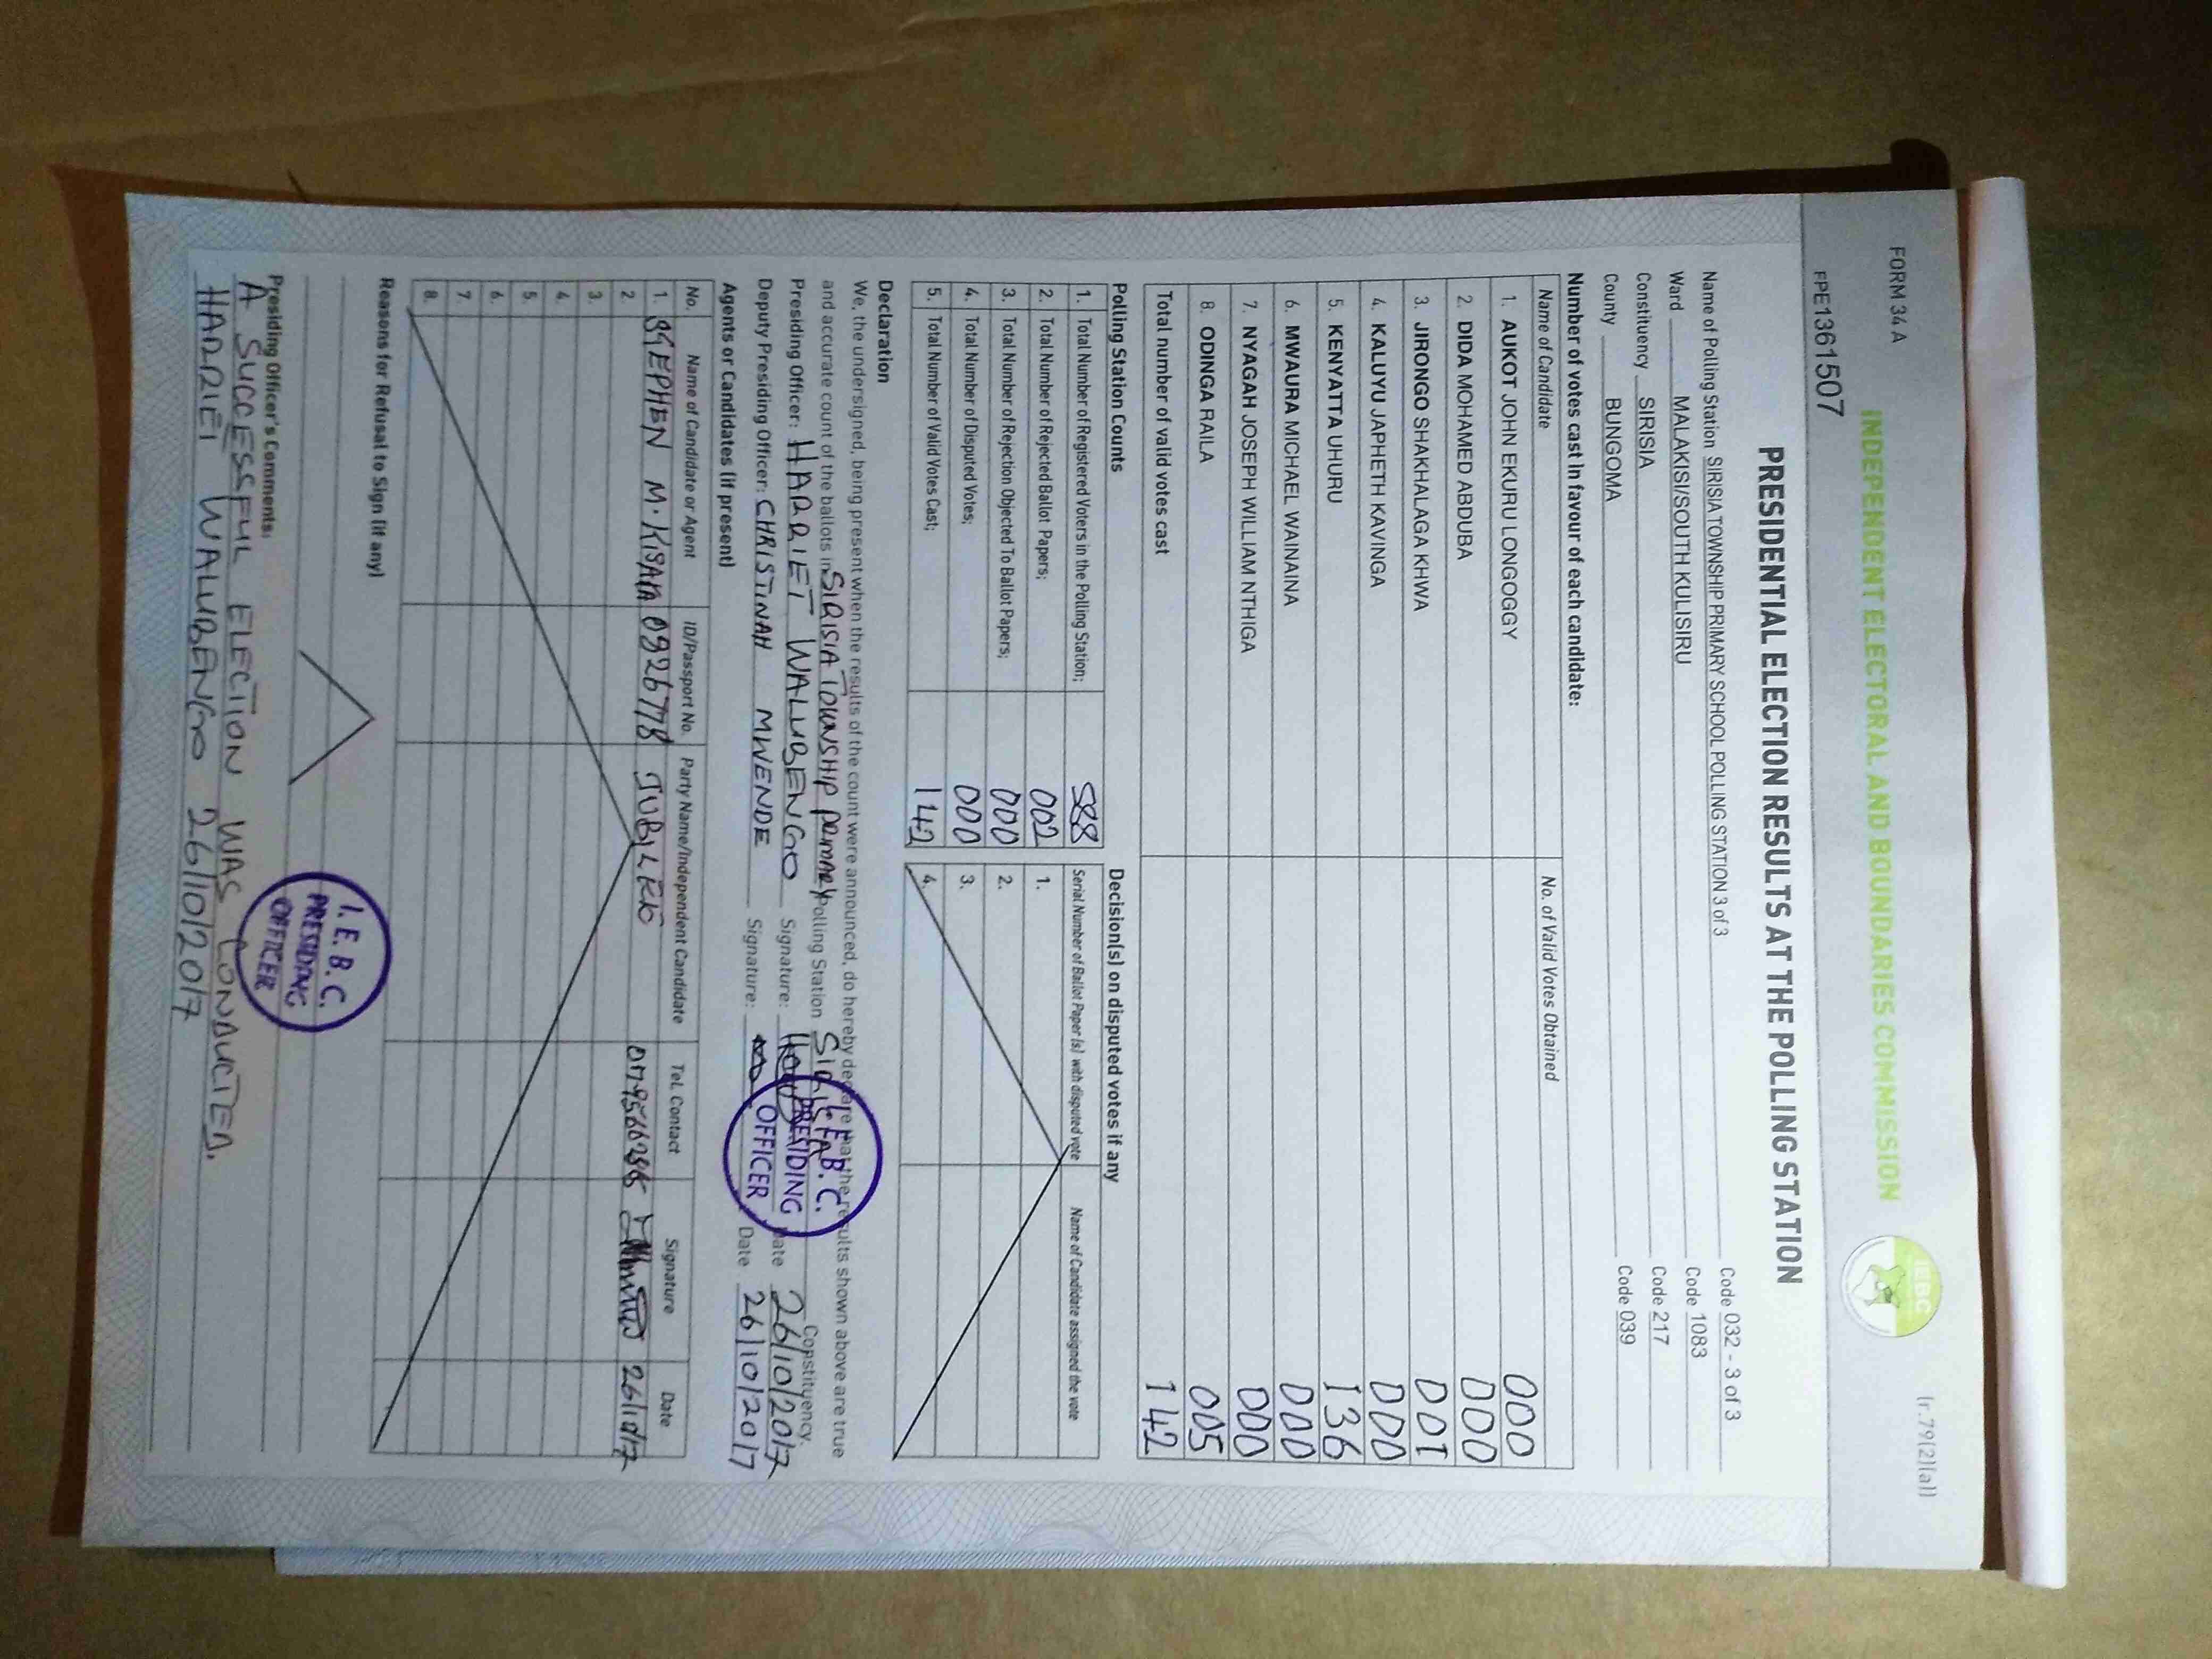 FORM 34 A
(r.79(2)(a))
INDEPENDENT ELECTORAL AND BOUNDARIES COMMISSION
IEBC
FPE1361507
PRESIDENTIAL ELECTION RESULTS AT THE POLLING STATION
Name of Polling Station SIRISIA TOWNSHIP PRIMARY SCHOOL POLLING STATION 3 of 3 Code 032 - 3 of 3
Ward MALAKISI/SOUTH KULISIRU Code 1083
Constituency SIRISIA Code 217
County BUNGOMA Code 039
Number of votes cast in favour of each candidate:
Name of Candidate No. of Valid Votes Obtained
1. AUKOT JOHN EKURU LONGOGGY 000
2. DIDA MOHAMED ABDUBA 000
3. JIRONGO SHAKHALAGA KHWA 001
4. KALUYU JAPHETH KAVINGA 000
5. KENYATTA UHURU 136
6. MWAURA MICHAEL WAINAINA 000
7. NYAGAH JOSEPH WILLIAM NTHIGA 000
8. ODINGA RAILA 005
Total number of valid votes cast 142
Polling Station Counts
1. Total Number of Registered Voters in the Polling Station; 588
2. Total Number of Rejected Ballot Papers; 002
3. Total Number of Rejection Objected To Ballot Papers; 000
4. Total Number of Disputed Votes; 000
5. Total Number of Valid Votes Cast; 142
Decision(s) on disputed votes if any
Serial Number of Ballot Paper(s) with disputed vote Name of Candidate assigned the vote
1.
2.
3.
4.
Declaration
We, the undersigned, being present when the results of the count were announced, do hereby declare that the results shown above are true
and accurate count of the ballots in SIRISIA TOWNSHIP PRIMARY Polling Station SIRISIA Constituency.
Presiding Officer: HARRIET WALUBENGO Signature: Date 26/10/2017
Deputy Presiding Officer: CHRISTINAH MWENDE Signature: Date 26/10/2017
I.E.B.C.
PRESIDING
OFFICER
Agents or Candidates (if present)
No. Name of Candidate or Agent ID/Passport No. Party Name/Independent Candidate Tel. Contact Signature Date
1. M. JUBILEE
2.
3.
4.
5.
6.
7.
8.
Reasons for Refusal to Sign (if any)
I.E.B.C.
PRESIDING
OFFICER
Presiding Officer's Comments:
A SUCCESSFUL ELECTION WAS CONDUCTED.
HARRIET WALUBENGO 26/10/2017